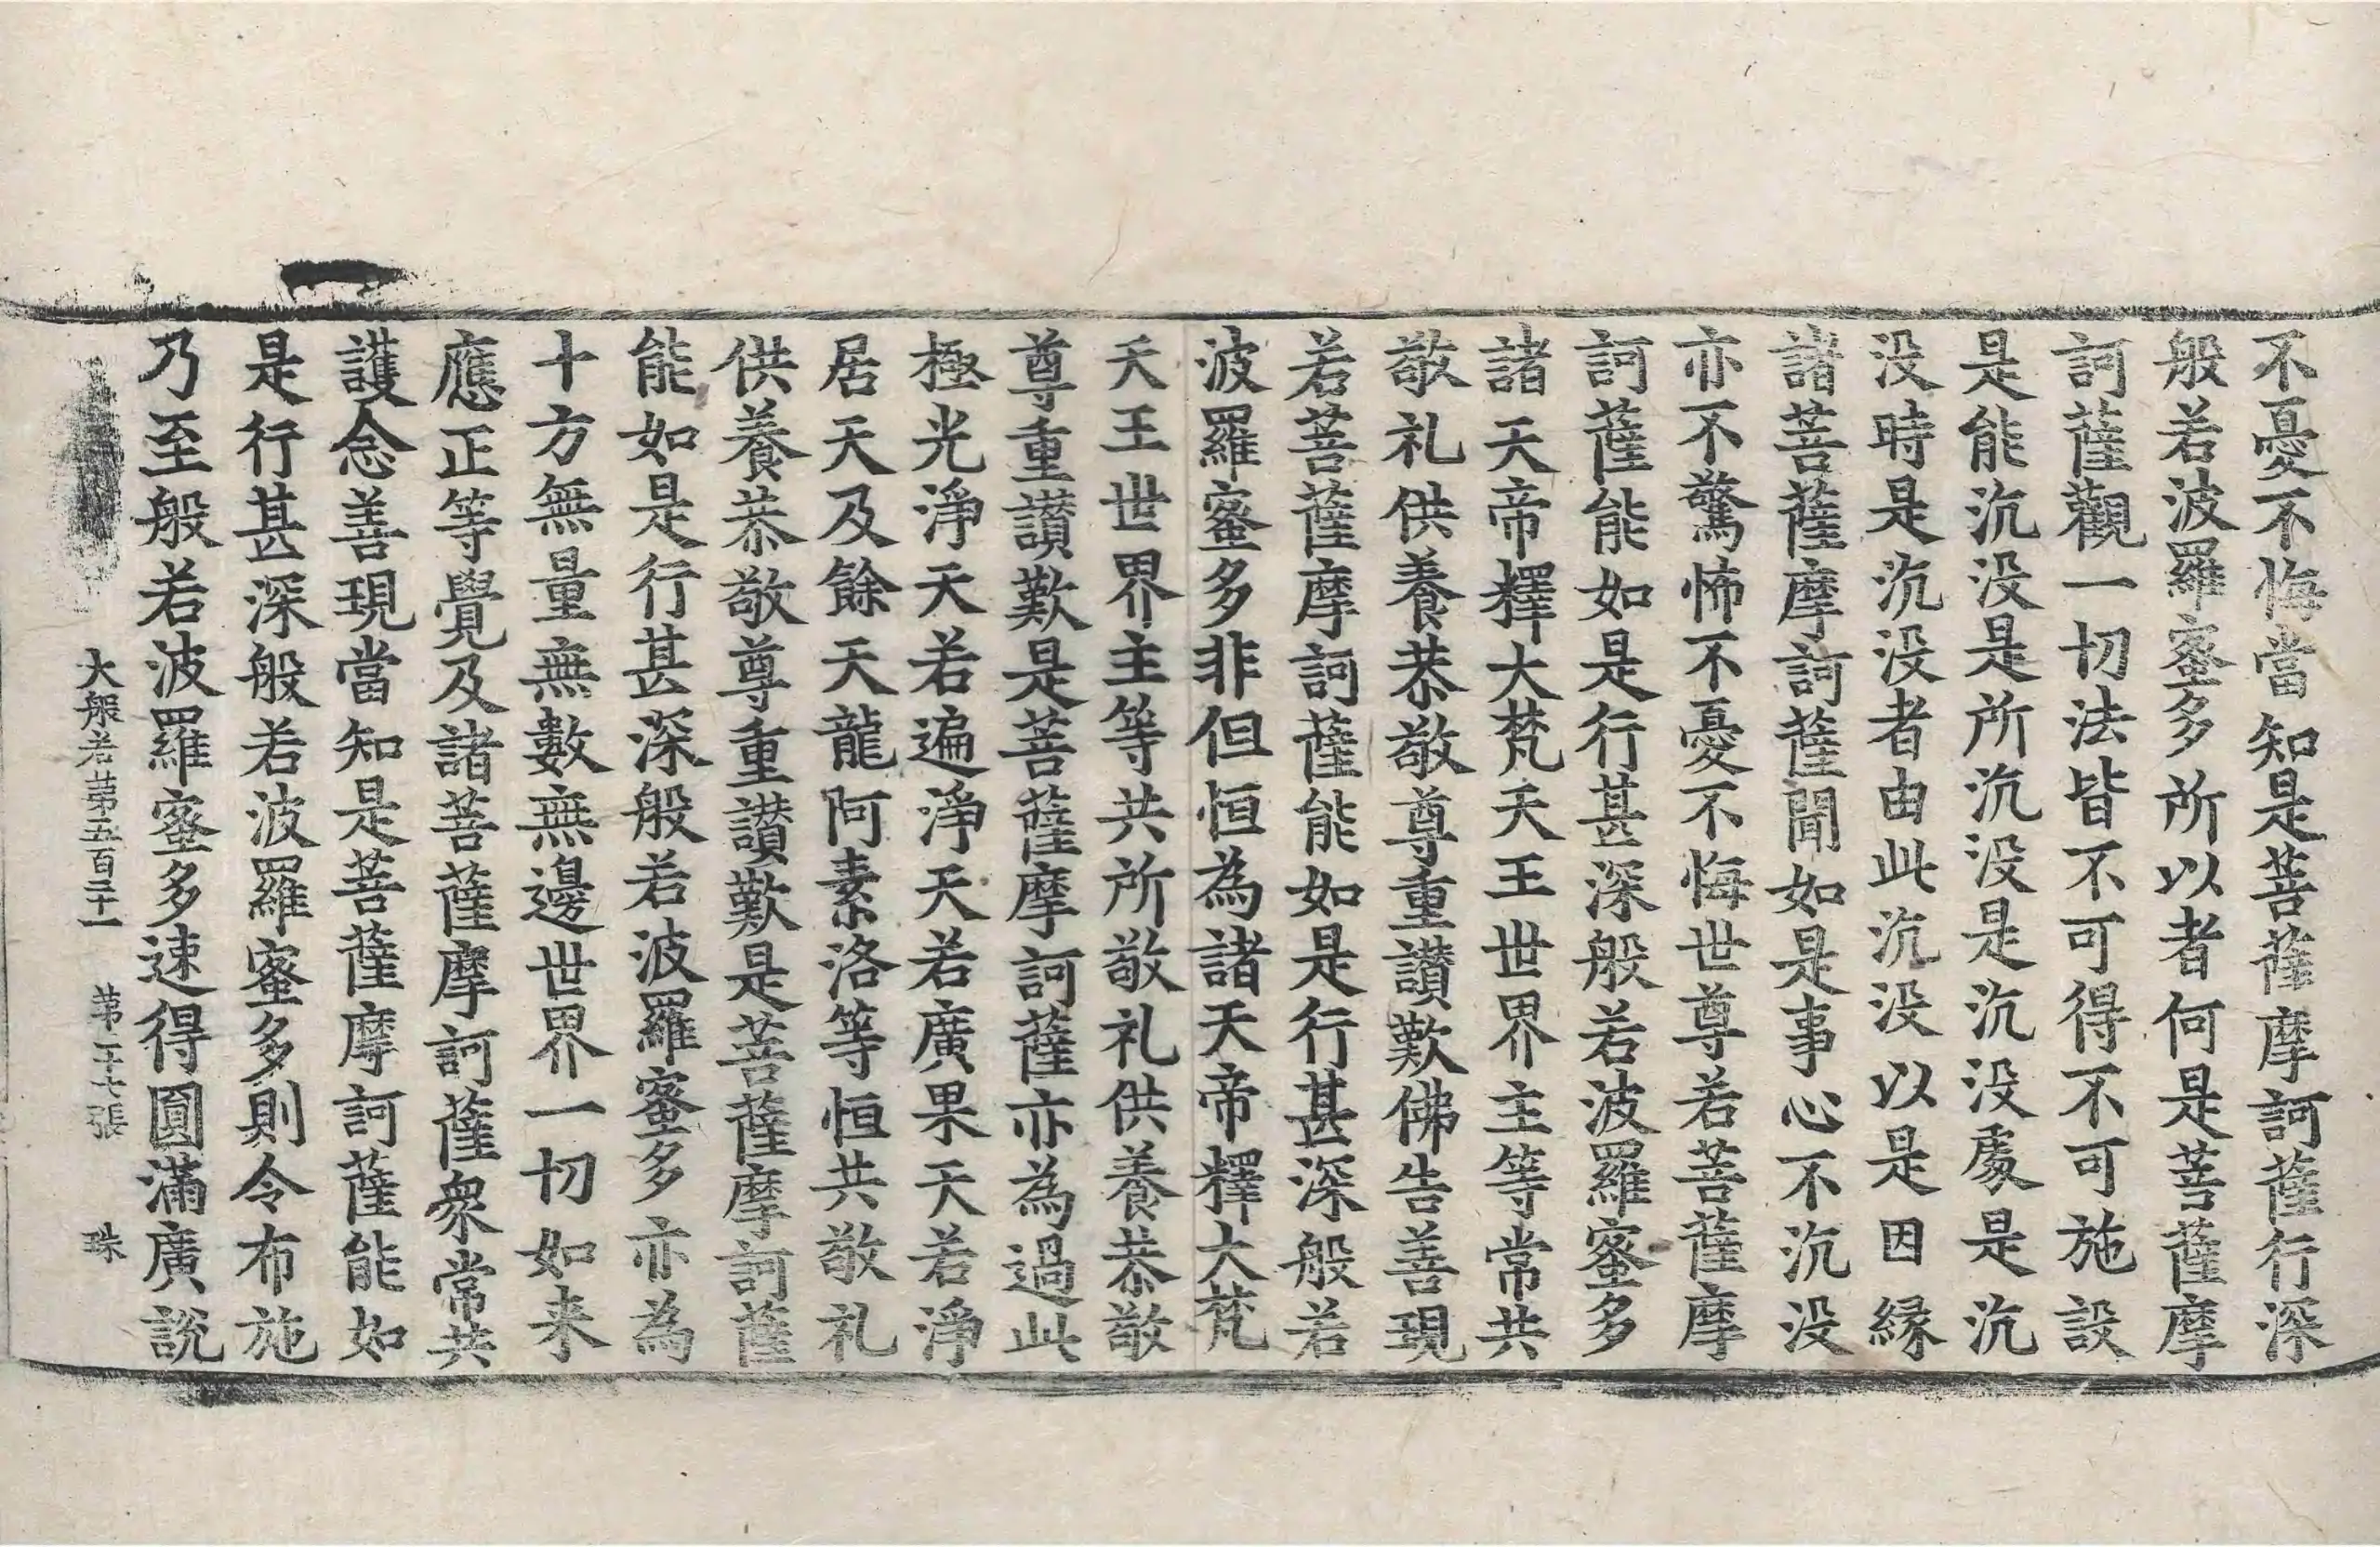 不憂不悔當知是菩薩摩訶薩行深
般若波羅蜜多所以者何是菩薩摩
訶薩觀一切法皆不可得不可施設
是能沉没是所沉没是沉没處是沉
没時是沉没者由此沉没以是因縁
諸菩薩摩訶薩聞如是事心不沉没
亦不驚怖不憂不悔世尊若菩薩摩
訶薩能如是行甚深般若波羅蜜多
諸天帝釋大梵天王世界主等常共
敬礼供養恭敬尊重讃歎佛告善現
若菩薩摩訶薩能如是行甚深般若
波羅蜜多非但恒為諸天帝釋大梵
天王世界主等共所敬礼供養恭敬
尊重讃歎是菩薩摩訶薩亦為過此
極光淨天若遍淨天若廣果天若淨
居天及餘天龍阿素洛等恒共敬礼
供養恭敬尊重讃歎是菩薩摩訶薩
能如是行甚深般若波羅蜜多亦為
十方無量無數無邊世界一切如来
應正等覺及諸菩薩摩訶薩衆常共
護念善現當知是菩薩摩訶薩能如
是行甚深般若波羅蜜多則令布施
乃至般若波羅蜜多速得圓滿廣說
大般若第五百二十一 第二十七張 珠